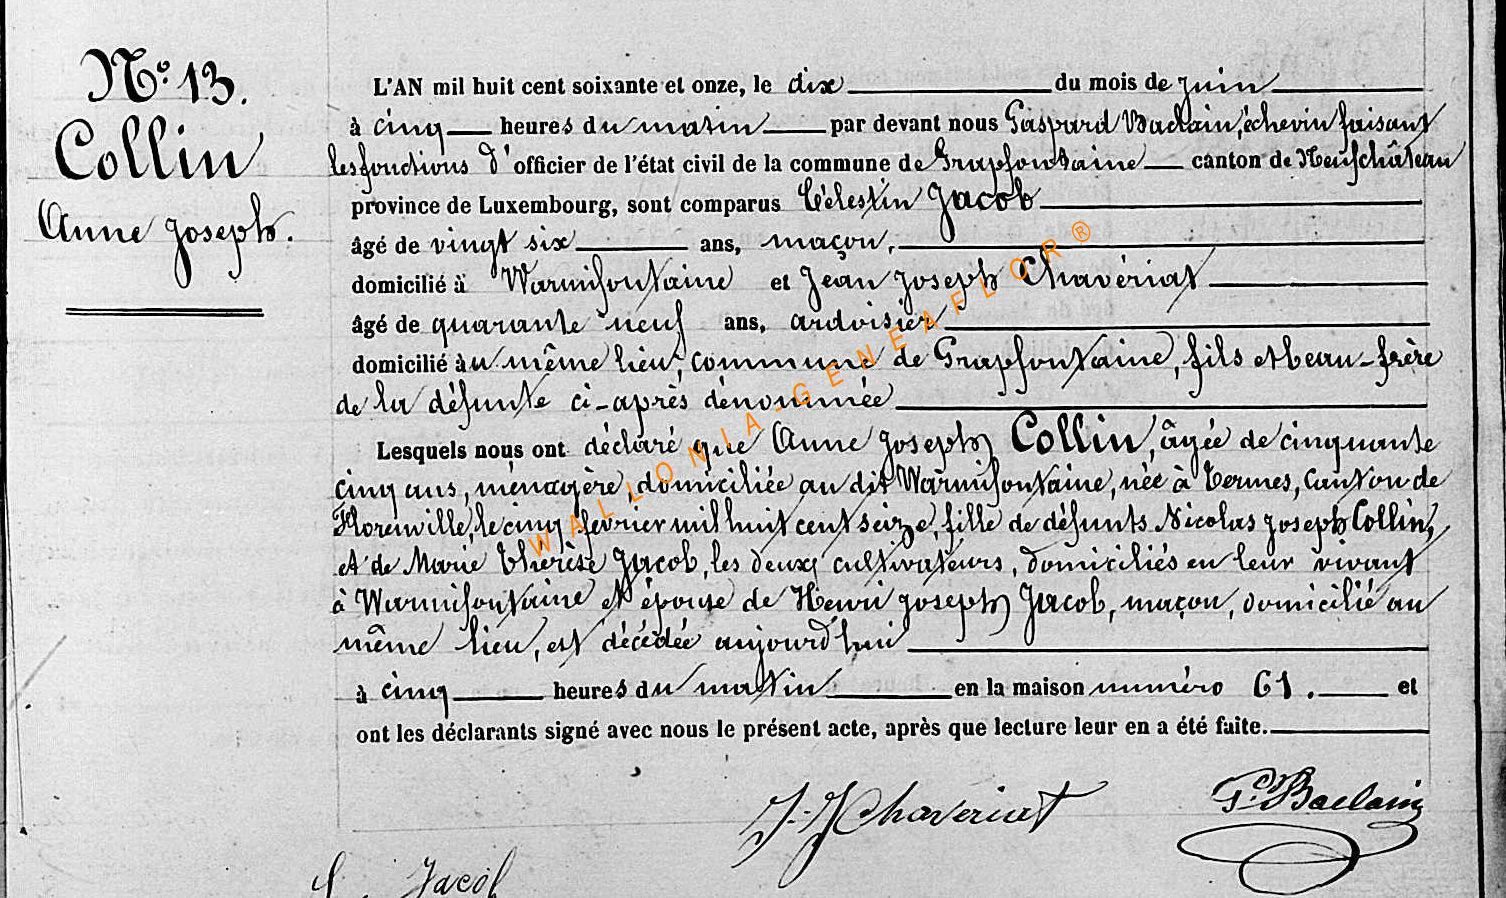 N° 13.
Collin
Anne Joseph.
L'AN mil huit cent soixante et onze, le dix du mois de juin
à cinq heures du matin par devant nous Gaspard Baclain, échevin faisant
les fonctions d'officier de l'état civil de la commune de Grapfontaine canton de Neufchâteau
province de Luxembourg, sont comparus Célestin Jacob
âgé de vingt six ans, maçon,
domicilié à Warmifontaine et Jean Joseph Chavériat
âgé de quarante neuf ans, ardoisier
domicilié au même lieu, commune de Grapfontaine, fils et beau-frère
de la défunte ci-après dénommée
Lesquels nous ont déclaré que Anne Joseph Collin, âgée de cinquante
cinq ans, ménagère, domiciliée au dit Warmifontaine, née à Termes, canton de
Florenville, le cinq février mil huit cent seize, fille de défunts Nicolas Joseph Collin,
et de Marie Thérèse Jacob, les deux cultivateurs, domiciliés en leur vivant
à Warmifontaine et épouse de Henri Joseph Jacob, maçon, domicilié au
même lieu, est décédée aujourd'hui
à cinq heures du matin en la maison numéro 61. et
ont les déclarants signé avec nous le présent acte, après que lecture leur en a été faite.
J. J. Chaveriat
G. Baclain
Jacob
WALLONIA-GENEAFLOR®